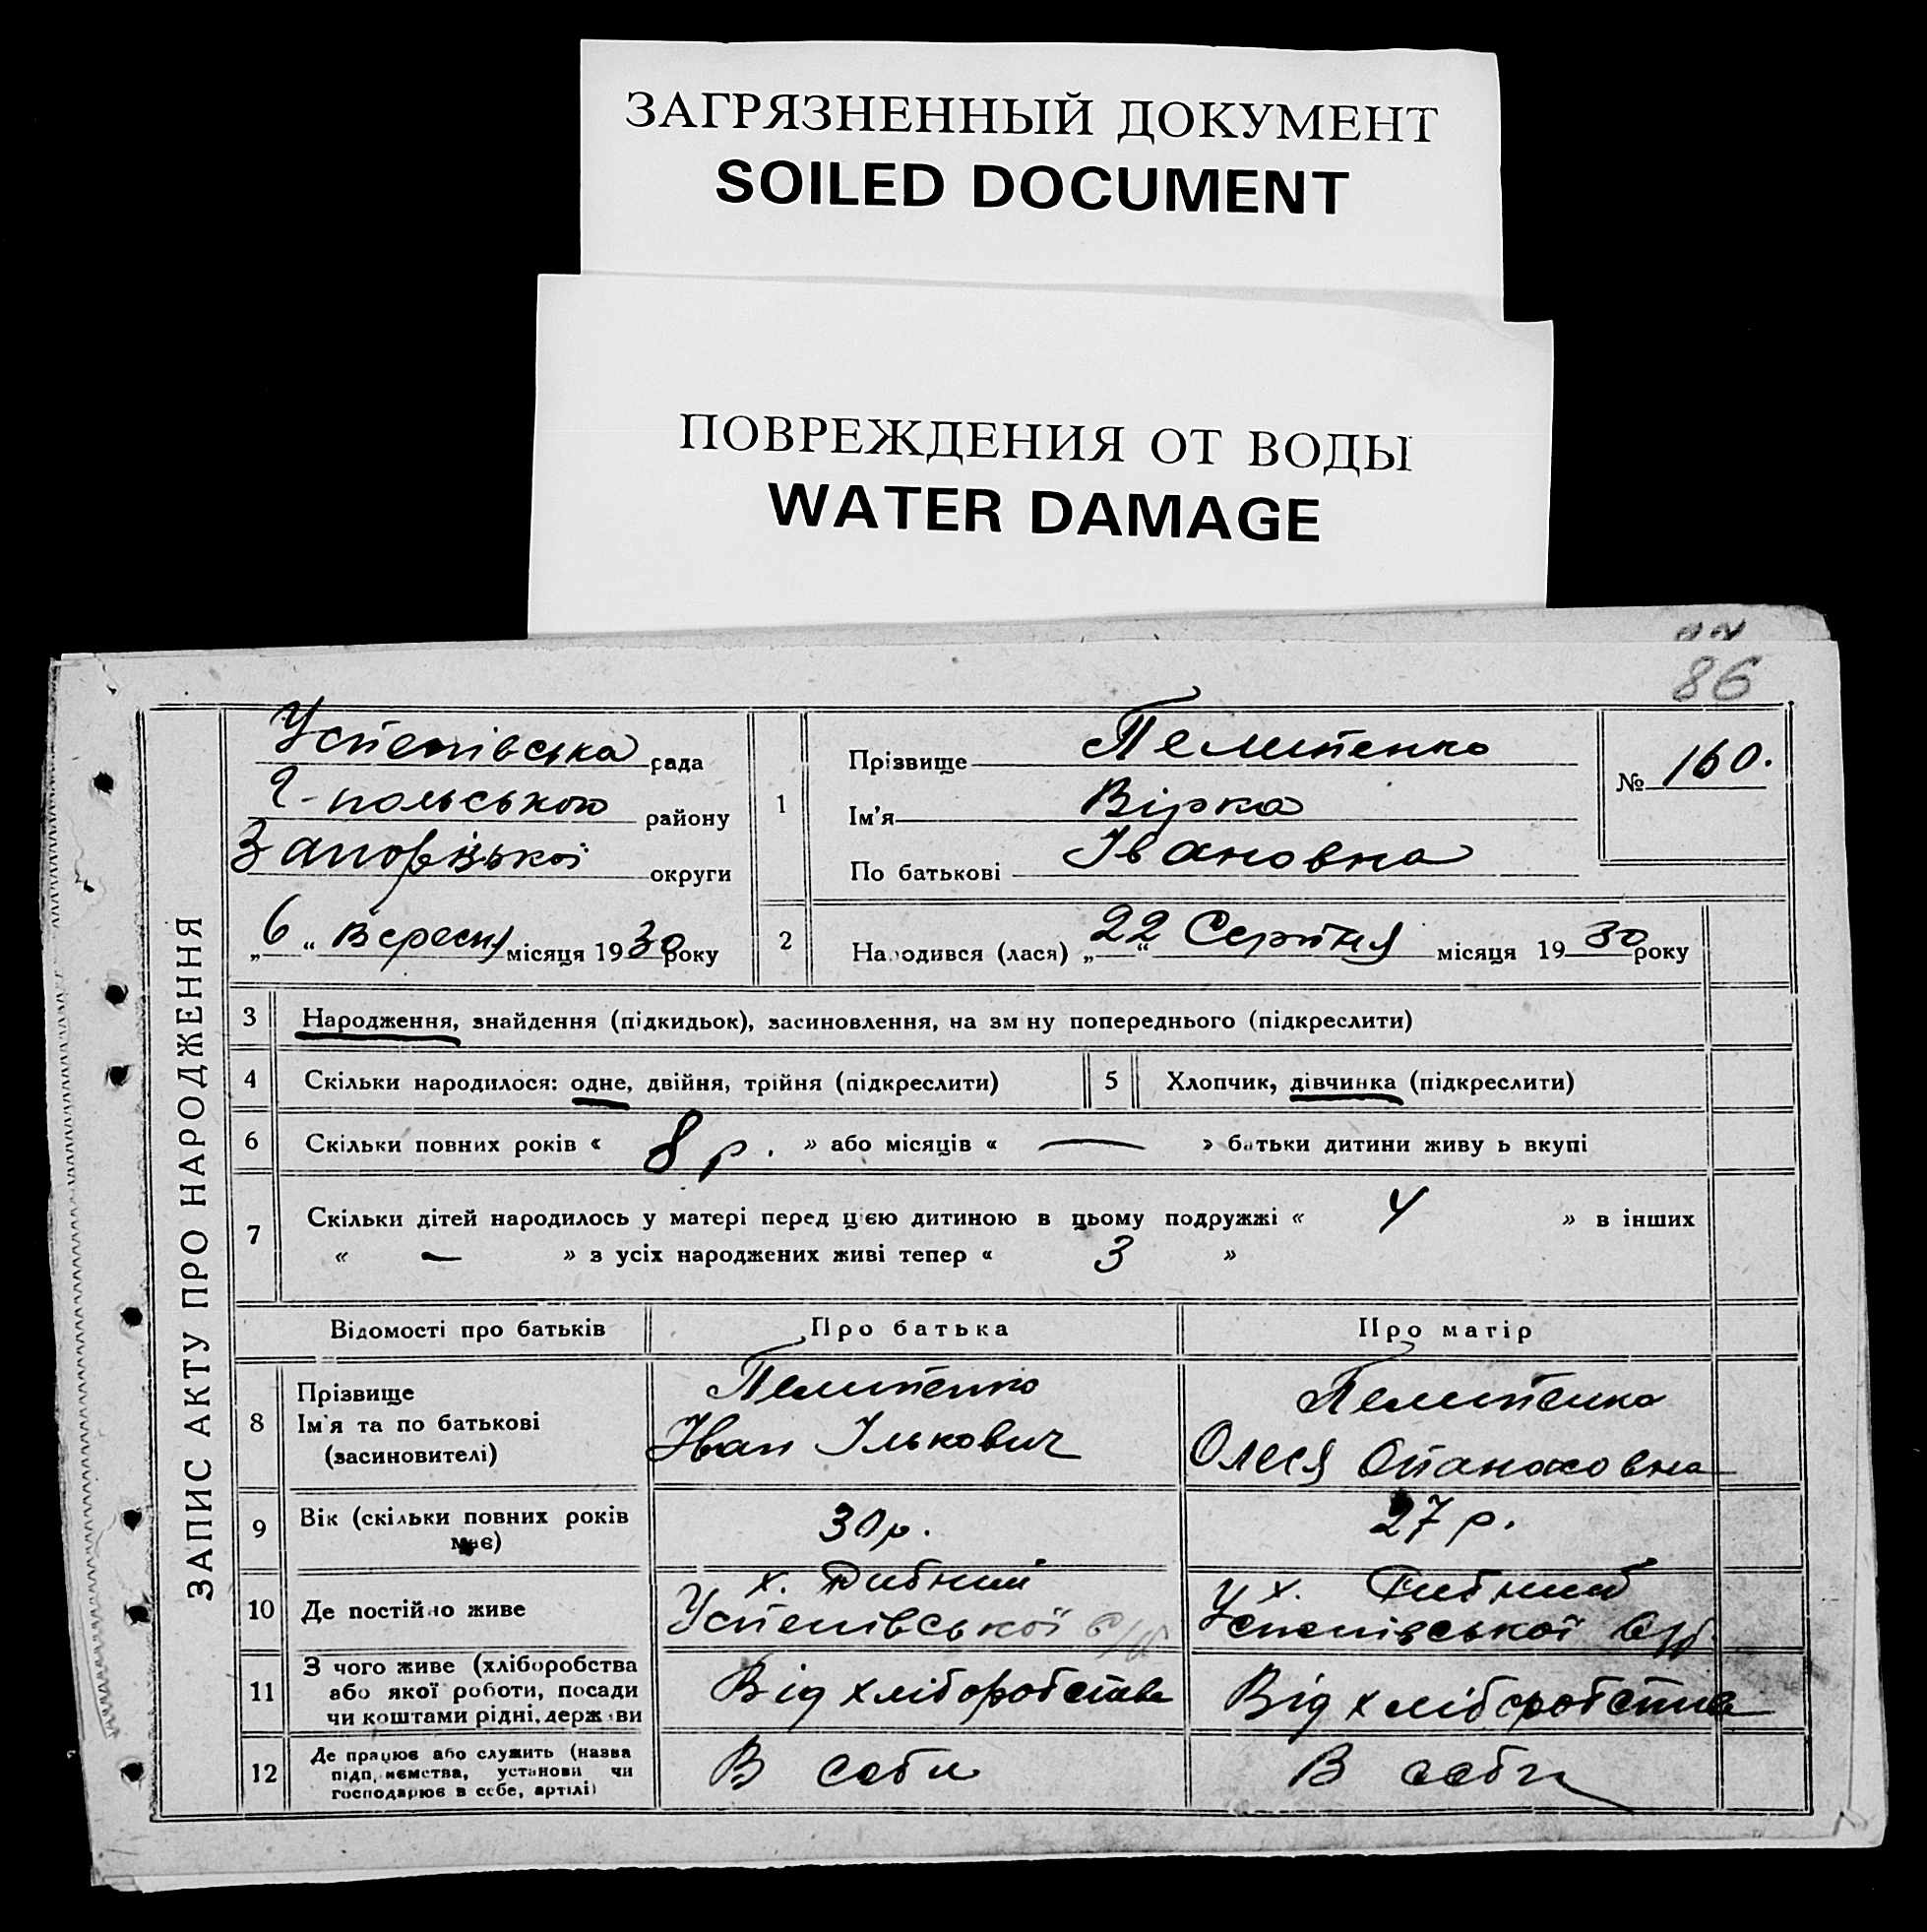 ЗАГРЯЗНЕННЫЙ ДОКУМЕНТ
SOILED DOCUMENT
ПОВРЕЖДЕНИЯ ОТ ВОДЫ
WATER DAMAGE
86
ЗАПИС АКТУ ПРО НАРОДЖЕННЯ
Успенівська рада
Г-польського району
Запорізької округи
„6“ Вересня місяця 1930 року
1
Прізвище Пелипенко
Ім'я Вірка
По батькові Івановна
№ 160.
2 Народився (лася) „22“ Серпня місяця 1930 року
3 Народження, знайдення (підкидьок), засиновлення, на зм ну попереднього (підкреслити)
4 Скільки народилося: одне, двійня, трійня (підкреслити) 5 Хлопчик, дівчинка (підкреслити)
6 Скільки повних років « 8 р. » або місяців « — » батьки дитини живу ь вкупі
7 Скільки дітей народилось у матері перед цією дитиною в цьому подружжі « 4 » в інших
« — » з усіх народжених живі тепер « 3 »
Відомості про батьків Про батька Про матір
8 Прізвище
Ім'я та по батькові
(засиновителі)
Пелипенко
Иван Ількович
Пелипенко
Олеся Опанасовна
9 Вік (скільки повних років
має)
30 р. 27 р.
10 Де постійно живе
х.
Успенівської с/р
х.
Успенівської с/р
11 З чого живе (хліборобства
або якої роботи, посади
чи коштами рідні, держави
Від хліборобства Від хліборобства
12 Де працює або служить (назва
підприємства, установи чи
господарює в себе, артілі)
В себе В себе